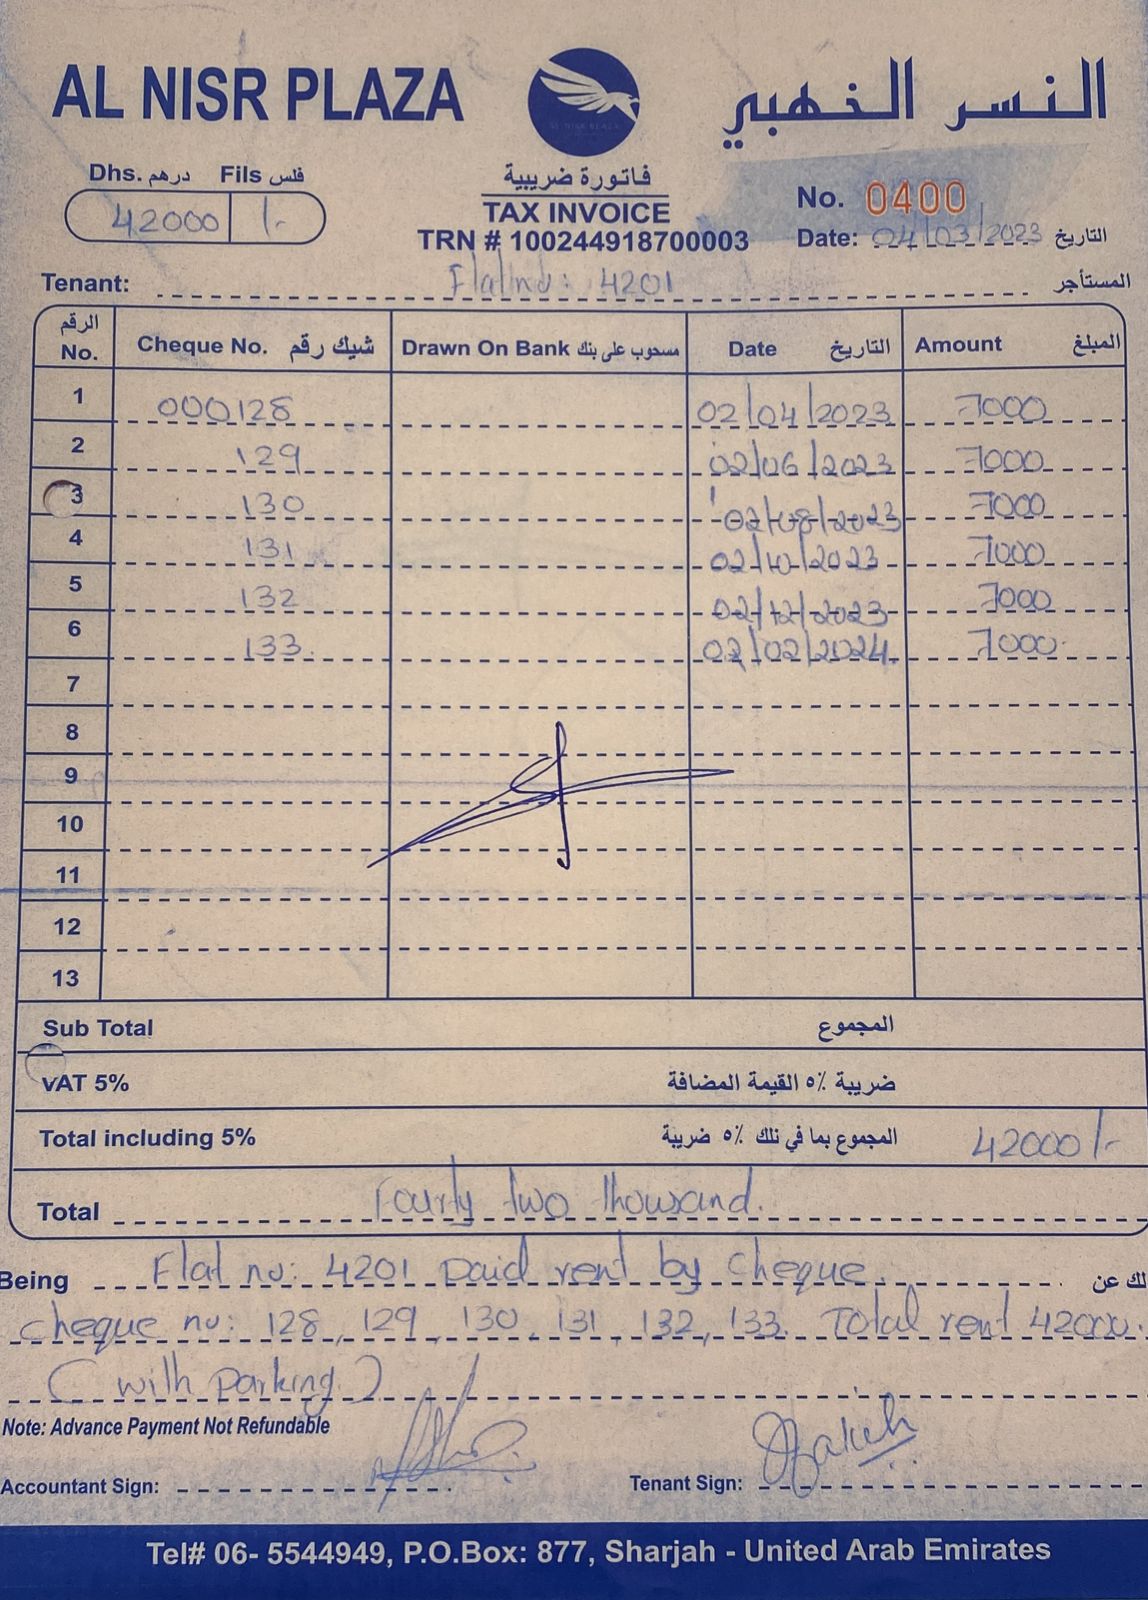 AL NISR PLAZA
النسر الذهبي
AL NISR PLAZA
Dhs. درهم Fils فلس
42000 /-
فاتورة ضريبية
TAX INVOICE
TRN # 100244918700003
No. 0400
Date: 04/03/2023 التاريخ
Tenant: Flat no: 4201 المستأجر
الرقم No. Cheque No. شيك رقم Drawn On Bank مسحوب على بنك Date التاريخ Amount المبلغ
1 000128 02/04/2023 7000
2 129 02/06/2023 7000
3 130 02/08/2023 7000
4 131 02/10/2023 7000
5 132 02/12/2023 7000
6 133. 02/02/2024 7000
7
8
9
10
11
12
13
Sub Total المجموع
vAT 5% ضريبة ٥٪ القيمة المضافة
Total including 5% المجموع بما في ذلك ٥٪ ضريبة 42000/-
Total Fourty two thousand.
Being Flat no: 4201 paid rent by cheque. لك عن
cheque no: 128, 129, 130, 131, 132, 133. Total rent 42000.
(with parking)
Note: Advance Payment Not Refundable
Accountant Sign:
Tenant Sign:
Tel# 06- 5544949, P.O.Box: 877, Sharjah - United Arab Emirates